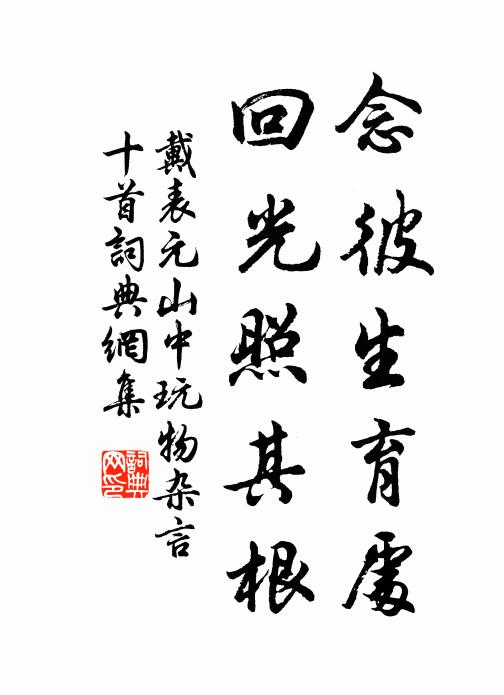 念彼生育處
回光照其根
戴表元山中玩物杂言
十首詞典網集
詞典网印